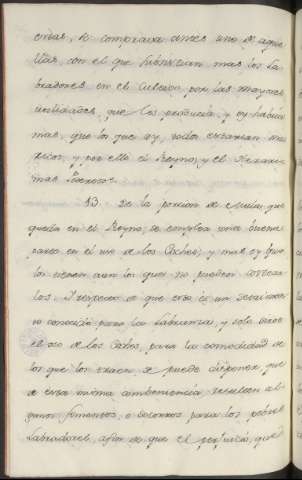 estas, se comprava antes uno de aque
llas, con el que hubieran mas los La
bradores en el Cultivo por las mayores
utilidades, que les producia, y oy havria
mas, que los que ay, todos estarian mas
ricos, y por ello el Reyno, y el Herario
mas Poderoso.
13. De la porcion de Mulas que
queda en el Reyno, se emplea una buena
parte en el uso de los Coches, y mas oy que
los tienen aun los que no pueden costear
los. Y respecto de que esto es un
conocido para la Labranza, y solo sirve
el uso de los Coches, para la comodidad de
los que los traen, se puede disponer que
de esta misma combeniencia resulten al
gunos fomentos, o socorros para los pobres
Labradores, afin de que el perjuicio, que